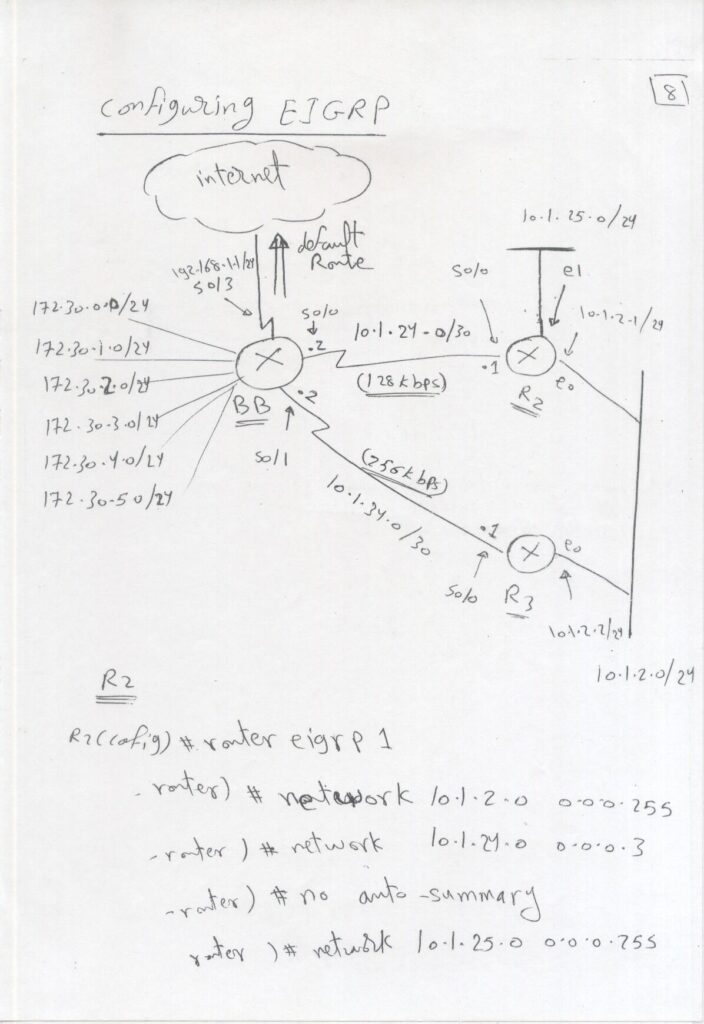 8
configuring EIGRP
internet
default
Route
192.168.1.1/24
S0/3
10.1.25.0/24
S0/0
e1
10.1.2.1/24
172.30.0.0/24
172.30.1.0/24
172.30.2.0/24
172.30.3.0/24
172.30.4.0/24
172.30.5.0/24
S0/0
.2
10.1.24.0/30
(128kbps)
.1
R2
e0
BB
.2
S0/1
(256kbps)
10.1.34.0/30
.1
S0/0
R3
e0
10.1.2.2/24
10.1.2.0/24
R2
R2(config)# router eigrp 1
-router) # network 10.1.2.0 0.0.0.255
-router) # network 10.1.24.0 0.0.0.3
-router) # no auto-summary
router )# network 10.1.25.0 0.0.0.255